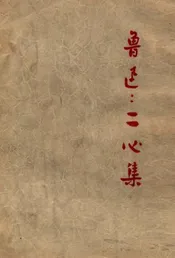 魯迅：二心集